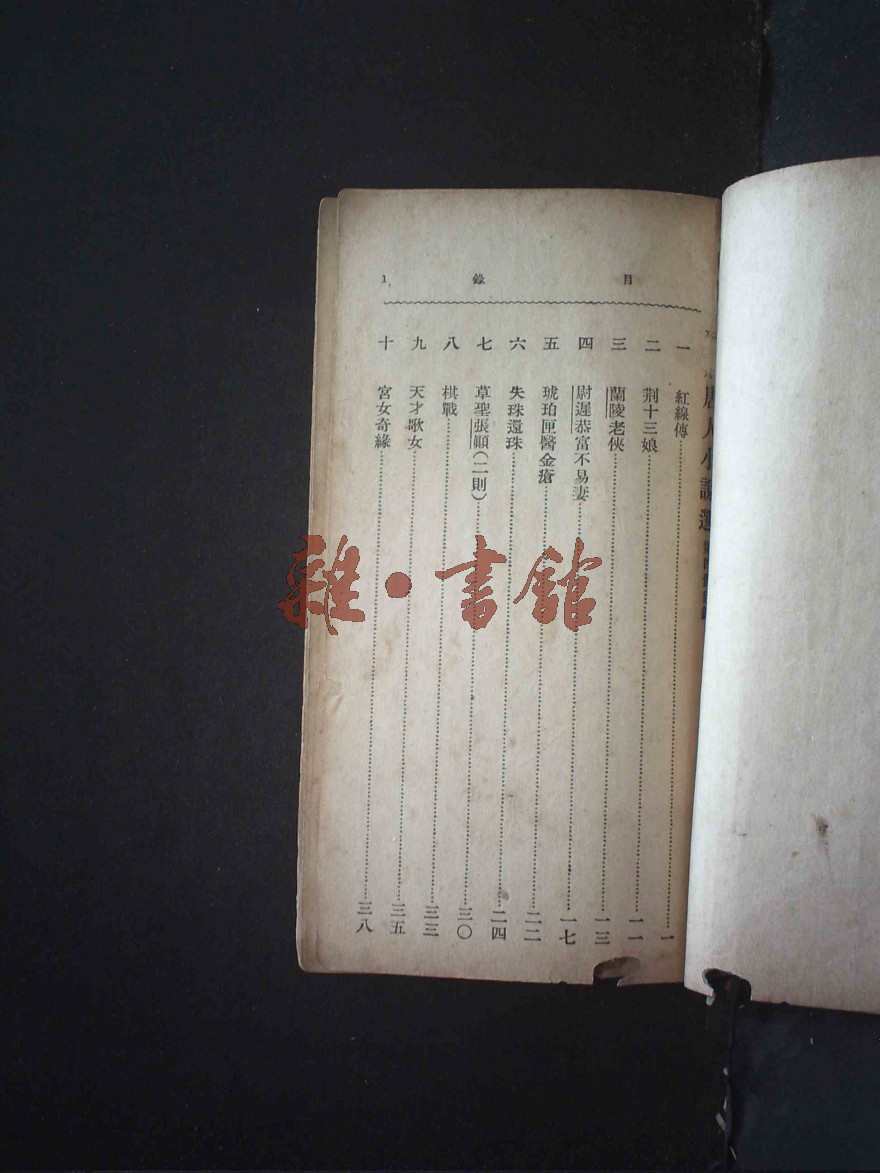 目錄 1
唐人小說選
一 紅線傳 一
二 荆十三娘 一一
三 蘭陵老俠 一三
四 尉遲恭富不易妻 一七
五 琥珀匣醫金瘡 二二
六 失珠還珠 二四
七 草聖張顚(二則) 三〇
八 棋戰 三三
九 天才歌女 三五
十 宮女奇緣 三八
雜·書館